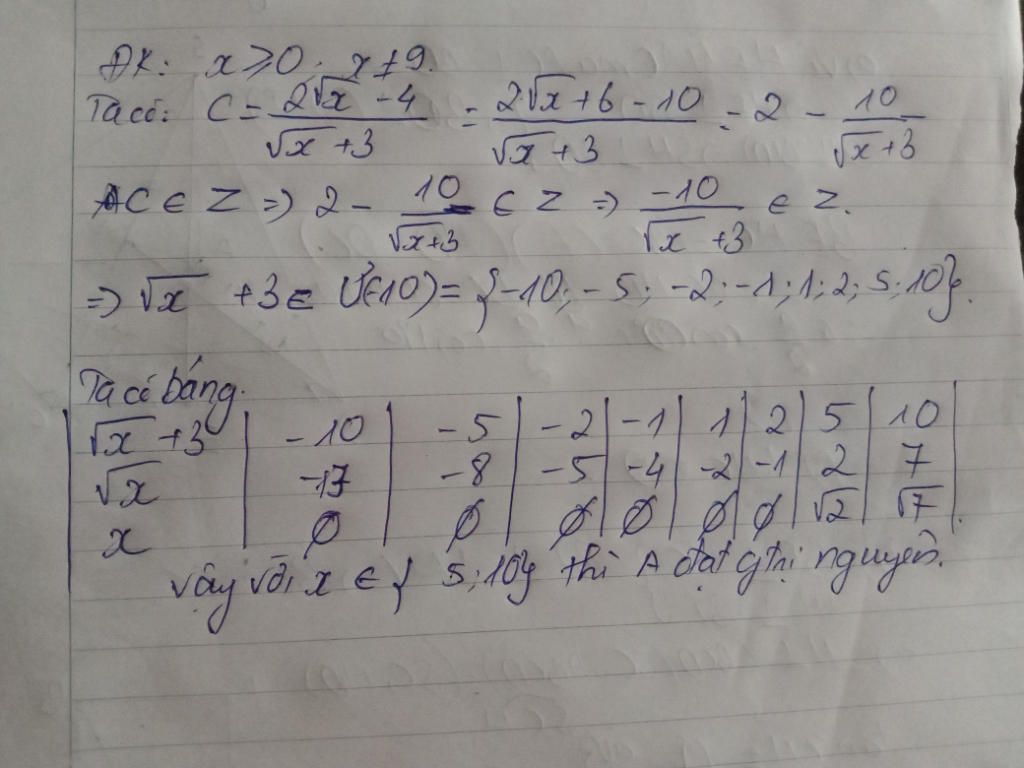 ĐK: x ≥ 0; x ≠ 9.
Ta có: C = (2√x - 4)/(√x + 3) = (2√x + 6 - 10)/(√x + 3) = 2 - 10/(√x + 3)
C ∈ Z => 2 - 10/(√x+3) ∈ Z => -10/(√x + 3) ∈ Z.
=> √x + 3 ∈ Ư(10) = {-10; -5; -2; -1; 1; 2; 5; 10}.
Ta có bảng.
√x + 3 | -10 | -5 | -2 | -1 | 1 | 2 | 5 | 10
√x | -13 | -8 | -5 | -4 | -2 | -1 | 2 | 7
x | ∅ | ∅ | ∅ | ∅ | ∅ | ∅ | √2 | √7
Vậy với x ∈ { 5; 10} thì A đạt gtrị nguyên.